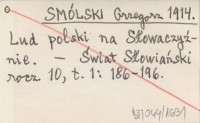 SMÓLSKI Grzegorz 1914.
Lud polski na Słowaczyź-
nie. — Świat Słowiański
rocz 10, t. 1: 186-196.